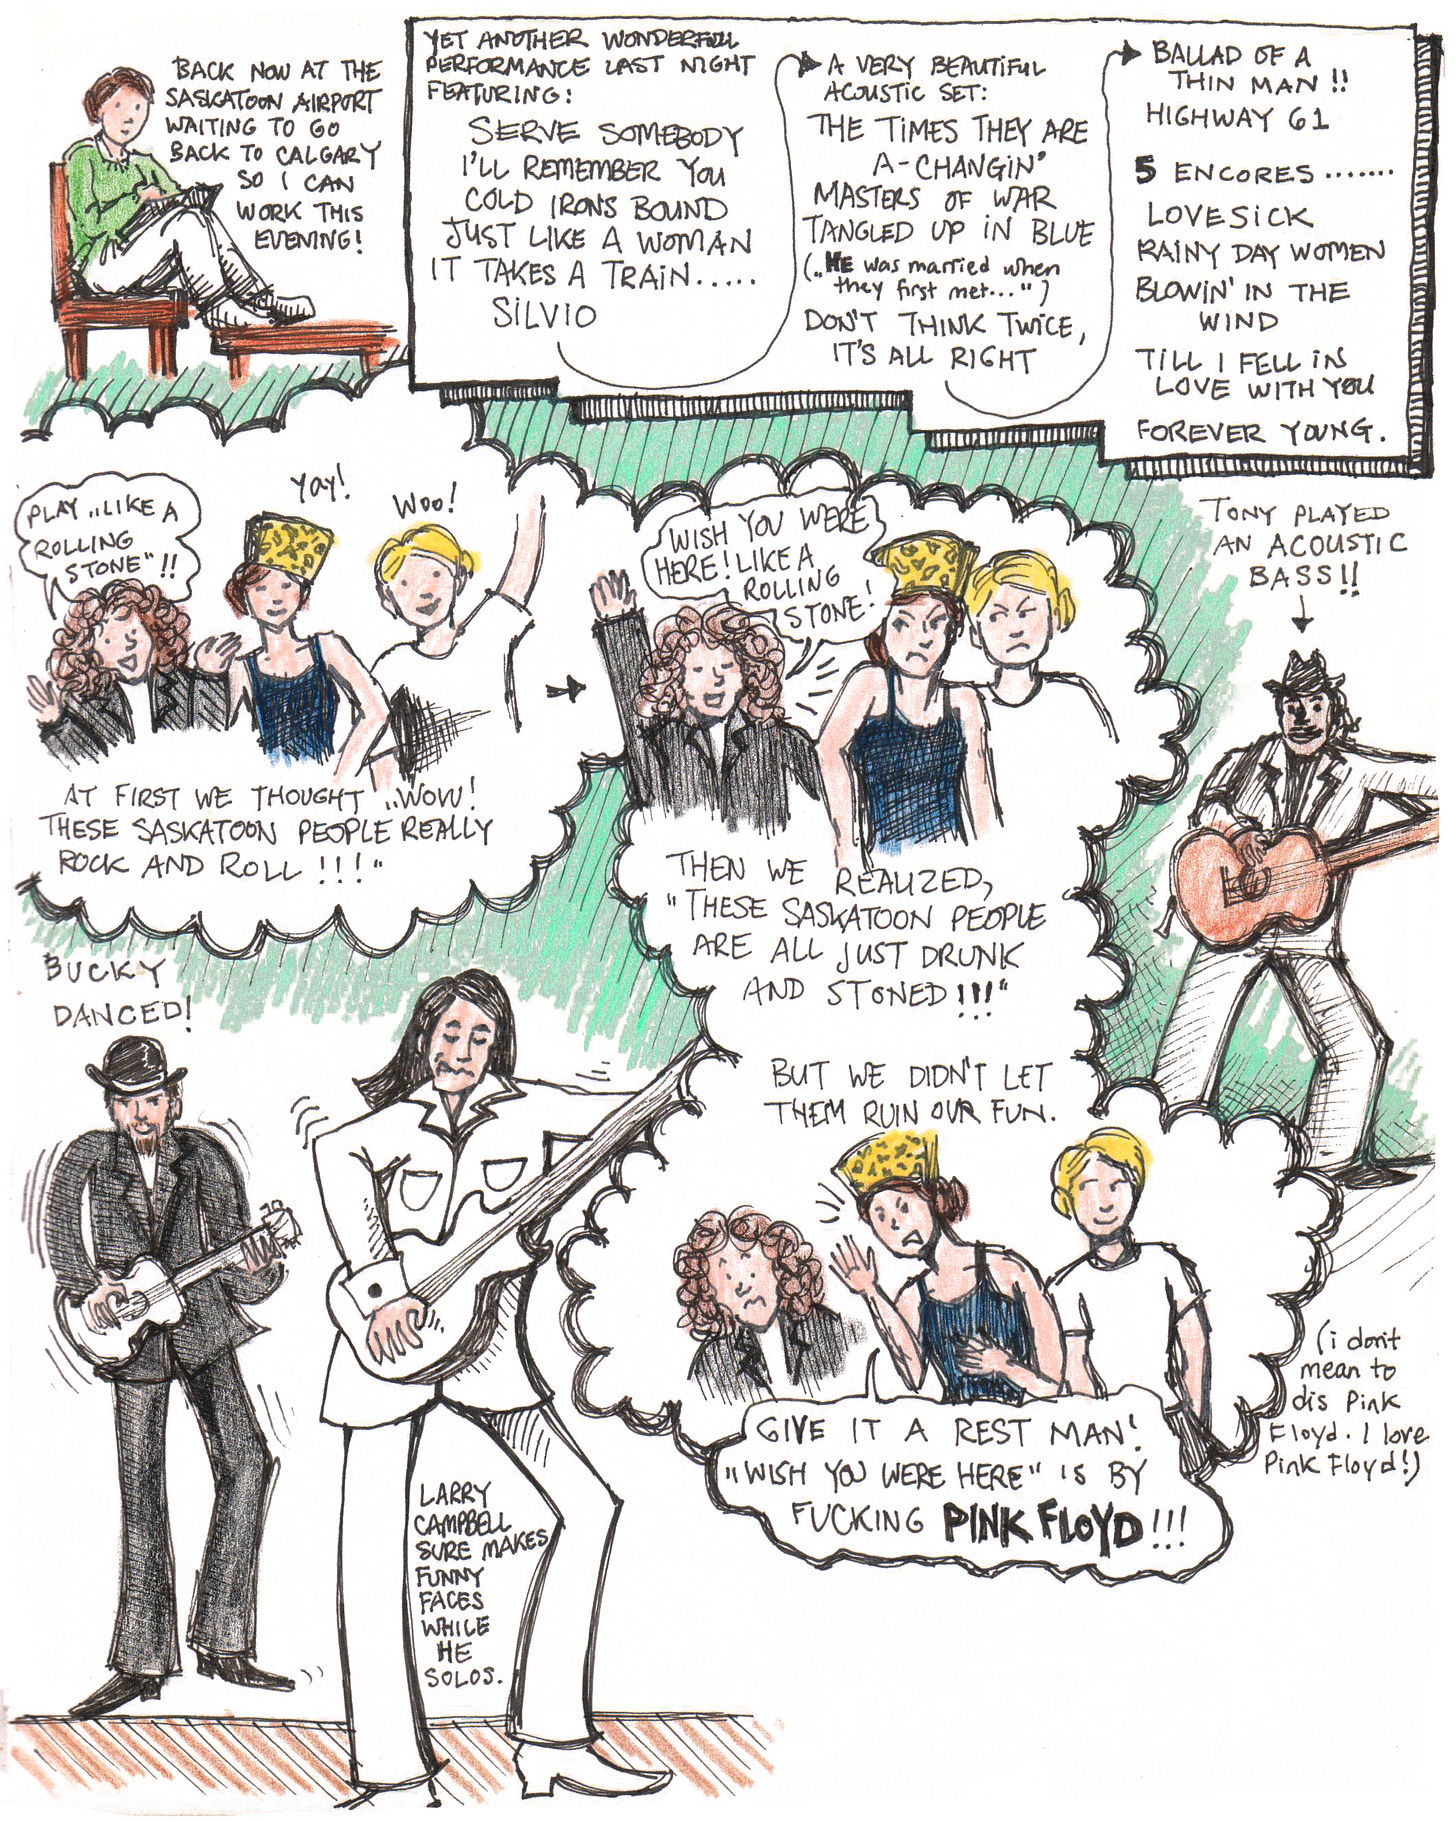 BACK NOW AT THE
SASKATOON AIRPORT
WAITING TO GO
BACK TO CALGARY
SO I CAN
WORK THIS
EVENING!
YET ANOTHER WONDERFULL
PERFORMANCE LAST NIGHT
FEATURING:
SERVE SOMEBODY
I'LL REMEMBER YOU
COLD IRONS BOUND
JUST LIKE A WOMAN
IT TAKES A TRAIN.....
SILVIO
A VERY BEAUTIFUL
ACOUSTIC SET:
THE TIMES THEY ARE
A-CHANGIN'
MASTERS OF WAR
TANGLED UP IN BLUE
(„HE was married when
they first met..." )
DON'T THINK TWICE,
IT'S ALL RIGHT
BALLAD OF A
THIN MAN !!
HIGHWAY 61
5 ENCORES.......
LOVESICK
RAINY DAY WOMEN
BLOWIN' IN THE
WIND
TILL I FELL IN
LOVE WITH YOU
FOREVER YOUNG.
PLAY „LIKE A
ROLLING
STONE"!!
Yay!
Woo!
AT FIRST WE THOUGHT „WOW!
THESE SASKATOON PEOPLE REALLY
ROCK AND ROLL !!!"
WISH YOU WERE
HERE! LIKE A
ROLLING
STONE!
THEN WE REALIZED,
"THESE SASKATOON PEOPLE
ARE ALL JUST DRUNK
AND STONED!!!"
TONY PLAYED
AN ACOUSTIC
BASS!!
BUCKY
DANCED!
BUT WE DIDN'T LET
THEM RUIN OUR FUN.
GIVE IT A REST MAN!
„WISH YOU WERE HERE" IS BY
FUCKING PINK FLOYD!!!
(i don't
mean to
dis Pink
Floyd. I love
Pink Floyd!)
LARRY
CAMPBELL
SURE MAKES
FUNNY
FACES
WHILE
HE
SOLOS.